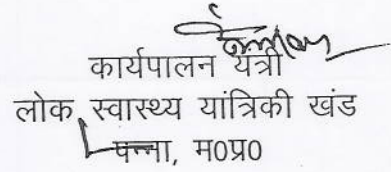 कार्यपालन यंत्री
लोक स्वास्थ्य यांत्रिकी खंड
पन्ना, म0प्र0